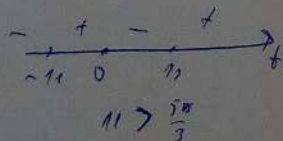 - + - +
-11 0 11 t
11 > 5π/3